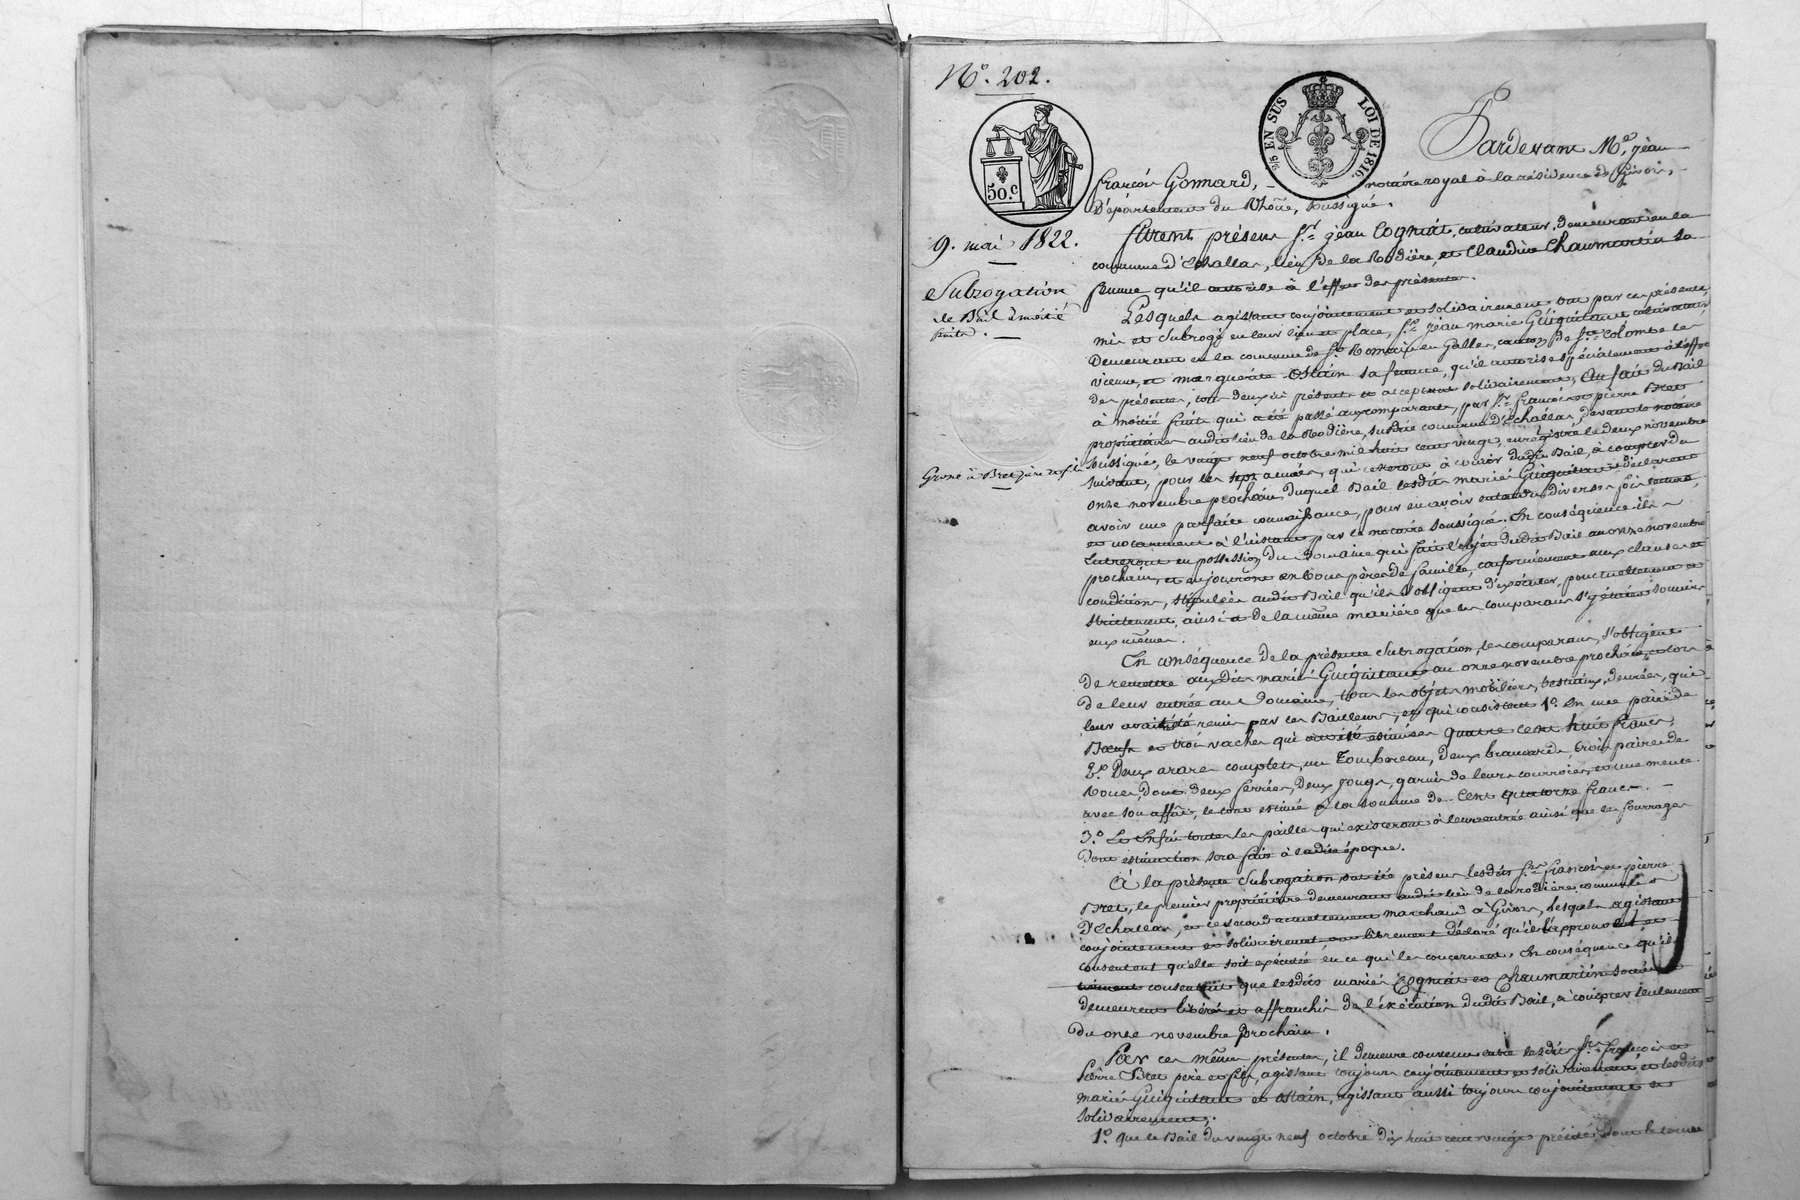 N.° 202.
50.c
2/5 EN SUS LOI DE 1816.
Pardevant M.e jean
françois Gonnard, notaire royal à la résidence de Givors,
Département du Rhône, soussigné.
9. mai 1822.
Subrogation
de Bail à moitié
fruits.
furent présens s.r jean Cogniat, cultivateur, demeurant en la
commune d'Echallas, lieu de la Rodière, et Claudine Chaumartin sa
femme qu'il autorise à l'effet des présentes.
Lesquels agissant conjointement et solidairement ont par ces présentes,
mis et subrogé en leur lieu et place, s.r jean marie Guiguitant cultivateur
Demeurant en la commune de S.t Romain en Galles, canton de S.te Colombe les
vienne, et marguerite Ostain sa femme, qu'il autorise spécialement à l'effet
des présentes, tous deux ici présents et acceptant solidairement, Au fait du Bail
à moitié fruits qui a été passé aux comparants, par s.rs françois et pierre Bret
propriétaires audit lieu de la Rodière, susdite commune d'Echallas, devant le notaire
soussigné, le vingt neuf octobre mil huit cent vingt, enregistré le deux novembre
Grosse à Bret père et fils
suivant, pour les sept années, qui resteront à courir dudit Bail, à compter du
onze novembre prochain, duquel Bail lesdits mariés Guiguitant déclarent
avoir une parfaite connaissance, pour en avoir entendu diverses fois lecture,
et notamment à l'instant par le notaire soussigné. En conséquence ils
Entreront en possession du domaine qui fait l'objet dudit Bail au onze novembre
prochain, et en jouiront en bons pères de famille, conformément aux clauses et
conditions, stipulées audit Bail qu'ils s'obligent d'exécuter, ponctuellement et
strictement, ainsi et de la même manière que les comparans s'y étaient soumis
eux mêmes.
En conséquence de la présente subrogation, les comparans, s'obligent
de remettre auxdits mariés Guiguitant au onze novembre prochain, et lors
de leur entrée au Domaine, tous les objets mobiliers, bestiaux, denrées, qui
leur avait été remis par les Bailleurs, et qui consistent 1.° En une paire de
Bœufs et trois vaches qui ont été estimées quatre cent huit francs,
2.° Deux arares complets, un Tombereau, deux brancards, trois paires de
roues, dont deux ferrées, deux jougs, garnis de leurs courroies, et une meule
avec son affût, le tout estimé à la somme de Cent quatorze francs.
3.° Et Enfin toutes les pailles qui existeront à leur entrée ainsi que les fourrages
dont estimation sera faite à ladite époque.
A la présente subrogation, ont été présens lesdits s.rs françois et pierre
Bret, le premier propriétaire demeurant audit lieu de la rodière commune
d'Echallas, et le second actuellement marchand à Givors, lesquels agissant
conjointement et solidairement, ont librement déclaré qu'ils l'approuvent et
consentent qu'elle soit exécutée en ce qui les concernent. En conséquence qu'ils
consentent que lesdits mariés Cogniat et Chaumartin
demeurent libérés et affranchis de l'exécution dudit Bail, à compter seulement
du onze novembre prochain.
Par ces mêmes présentes, il demeure convenu entre lesdits s.rs françois et
Pierre Bret père et fils, agissant toujours conjointement et solidairement et lesdits
mariés Guiguitant et ostain, agissant aussi toujours conjointement et
solidairement;
1.° que le Bail du vingt neuf octobre dix huit cent vingt précité, dont le terme